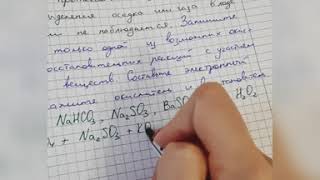 выделение осадка или газа в ходе
не наблюдается. Запишите
только одной из возможных окис
восстановительных реакций с участием
веществ Составьте электронный
окислитель и
NaHCO₃, Na₂SO₃, BaSO H₂O₂
+ Na₂SO₃ +